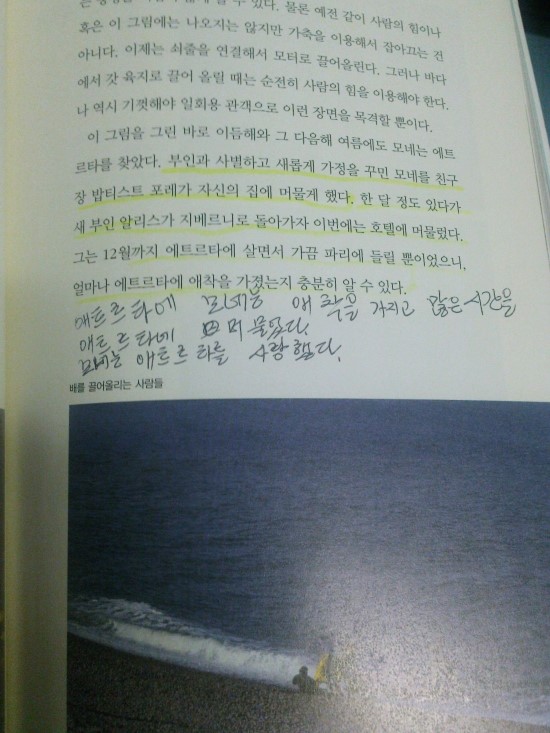 물론 예전 같이 사람의 힘이나
혹은 이 그림에는 나오지는 않지만 가축을 이용해서 잡아끄는 건
아니다. 이제는 쇠줄을 연결해서 모터로 끌어올린다. 그러나 바다
에서 갓 육지로 끌어 올릴 때는 순전히 사람의 힘을 이용해야 한다.
나 역시 기껏해야 일회용 관객으로 이런 장면을 목격할 뿐이다.
이 그림을 그린 바로 이듬해와 그 다음해 여름에도 모네는 에트
르타를 찾았다. 부인과 사별하고 새롭게 가정을 꾸민 모네를 친구
장 밥티스트 포레가 자신의 집에 머물게 했다. 한 달 정도 있다가
새 부인 알리스가 지베르니로 돌아가자 이번에는 호텔에 머물렀다.
그는 12월까지 에트르타에 살면서 가끔 파리에 들릴 뿐이었으니,
얼마나 에트르타에 애착을 가졌는지 충분히 알 수 있다.
애트르타에 모네는 애착을 가지고 많은 시간을
애트르타네 머물었다.
모네는 애트르타를 사랑했다.
배를 끌어올리는 사람들